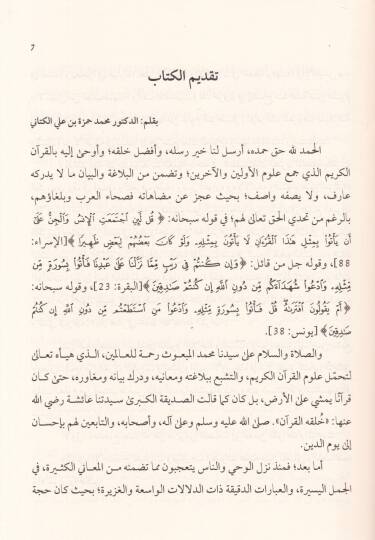 ٧
تقديم الكتاب
بقلم: الدكتور محمد حمزة بن علي الكتاني
الحمد لله حق حمده، أرسل لنا خير رسله، وأفضل خلقه؛ وأوحىٰ إليه بالقرآن
الكريم الذي جمع علوم الأولين والآخرين؛ وتضمن من البلاغة والبيان ما لا يدركه
عارف، ولا يصفه واصف؛ بحيث عجز عن مضاهاته فصحاء العرب وبلغاؤهم،
بالرغم من تحدي الحق تعالىٰ لهم؛ في قوله سبحانه: ﴿ قُل لَّئِنِ ٱجْتَمَعَتِ ٱلْإِنسُ وَٱلْجِنُّ عَلَىٰٓ
أَن يَأْتُوا۟ بِمِثْلِ هَٰذَا ٱلْقُرْءَانِ لَا يَأْتُونَ بِمِثْلِهِۦ وَلَوْ كَانَ بَعْضُهُمْ لِبَعْضٍ ظَهِيرًا ﴾[الإسراء:
88]، وقوله جل من قائل: ﴿ وَإِن كُنتُمْ فِى رَيْبٍ مِّمَّا نَزَّلْنَا عَلَىٰ عَبْدِنَا فَأْتُوا۟ بِسُورَةٍ مِّن
مِّثْلِهِۦ وَٱدْعُوا۟ شُهَدَآءَكُم مِّن دُونِ ٱللَّهِ إِن كُنتُمْ صَٰدِقِينَ ﴾[البقرة: 23]، وقوله سبحانه:
﴿ أَمْ يَقُولُونَ ٱفْتَرَىٰهُ قُلْ فَأْتُوا۟ بِسُورَةٍ مِّثْلِهِۦ وَٱدْعُوا۟ مَنِ ٱسْتَطَعْتُم مِّن دُونِ ٱللَّهِ إِن كُنتُمْ
صَٰدِقِينَ ﴾[يونس: 38].
والصلاة والسلام علىٰ سيدنا محمد المبعوث رحمة للعالمين، الذي هيأه تعالىٰ
لتحمّل علوم القرآن الكريم، والتشبع ببلاغته ومعانيه، ودرك بيانه ومغاوره، حتىٰ كان
قرآنًا يمشي علىٰ الأرض، بل كان كما قالت الصديقة الكبرىٰ سيدتنا عائشة رضي الله
عنها: «خُلقه القرآن». صلىٰ الله عليه وسلم وعلىٰ آله، وأصحابه، والتابعين لهم بإحسان
إلىٰ يوم الدين.
أما بعد؛ فمنذ نزل الوحي والناس يتعجبون مما تضمنه من المعاني الكثيرة، في
الجمل اليسيرة، والعبارات الدقيقة ذات الدلالات الواسعة والغزيرة؛ بحيث كان حجة